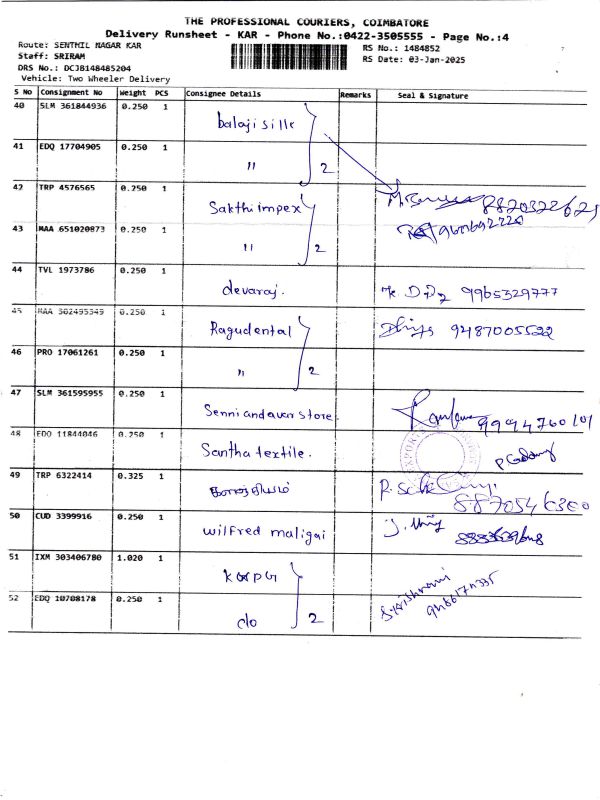 THE PROFESSIONAL COURIERS, COIMBATORE
Delivery Runsheet - KAR - Phone No.:0422-3505555 - Page No.:4
Route: SENTHIL NAGAR KAR
RS No.: 1484852
Staff: SRIRAM
RS Date: 03-Jan-2025
DRS No.: DCJB148485204
Vehicle: Two Wheeler Delivery
S No Consignment No Weight PCS Consignee Details Remarks Seal & Signature
40 SLM 361844936 0.250 1 balaji silk
41 EDQ 17704905 0.250 1 " 2
42 TRP 4576565 0.250 1 Sakthi impex 8820322629
43 MAA 651020873 0.250 1 " 2
44 TVL 1973786 0.250 1 devaraj. 9965329777
45 MAA 302495349 0.250 1 Ragudental 9487005522
46 PRO 17061261 0.250 1 " 2
47 SLM 361595955 0.250 1 Senniandavar store. 9994760101
48 EDQ 11844046 0.250 1 Santha textile.
49 TRP 6322414 0.325 1 8870546360
50 CUD 3399916 0.250 1 wilfred maligai
51 IXM 303406780 1.020 1
52 EDQ 10708178 0.250 1 c/o 2